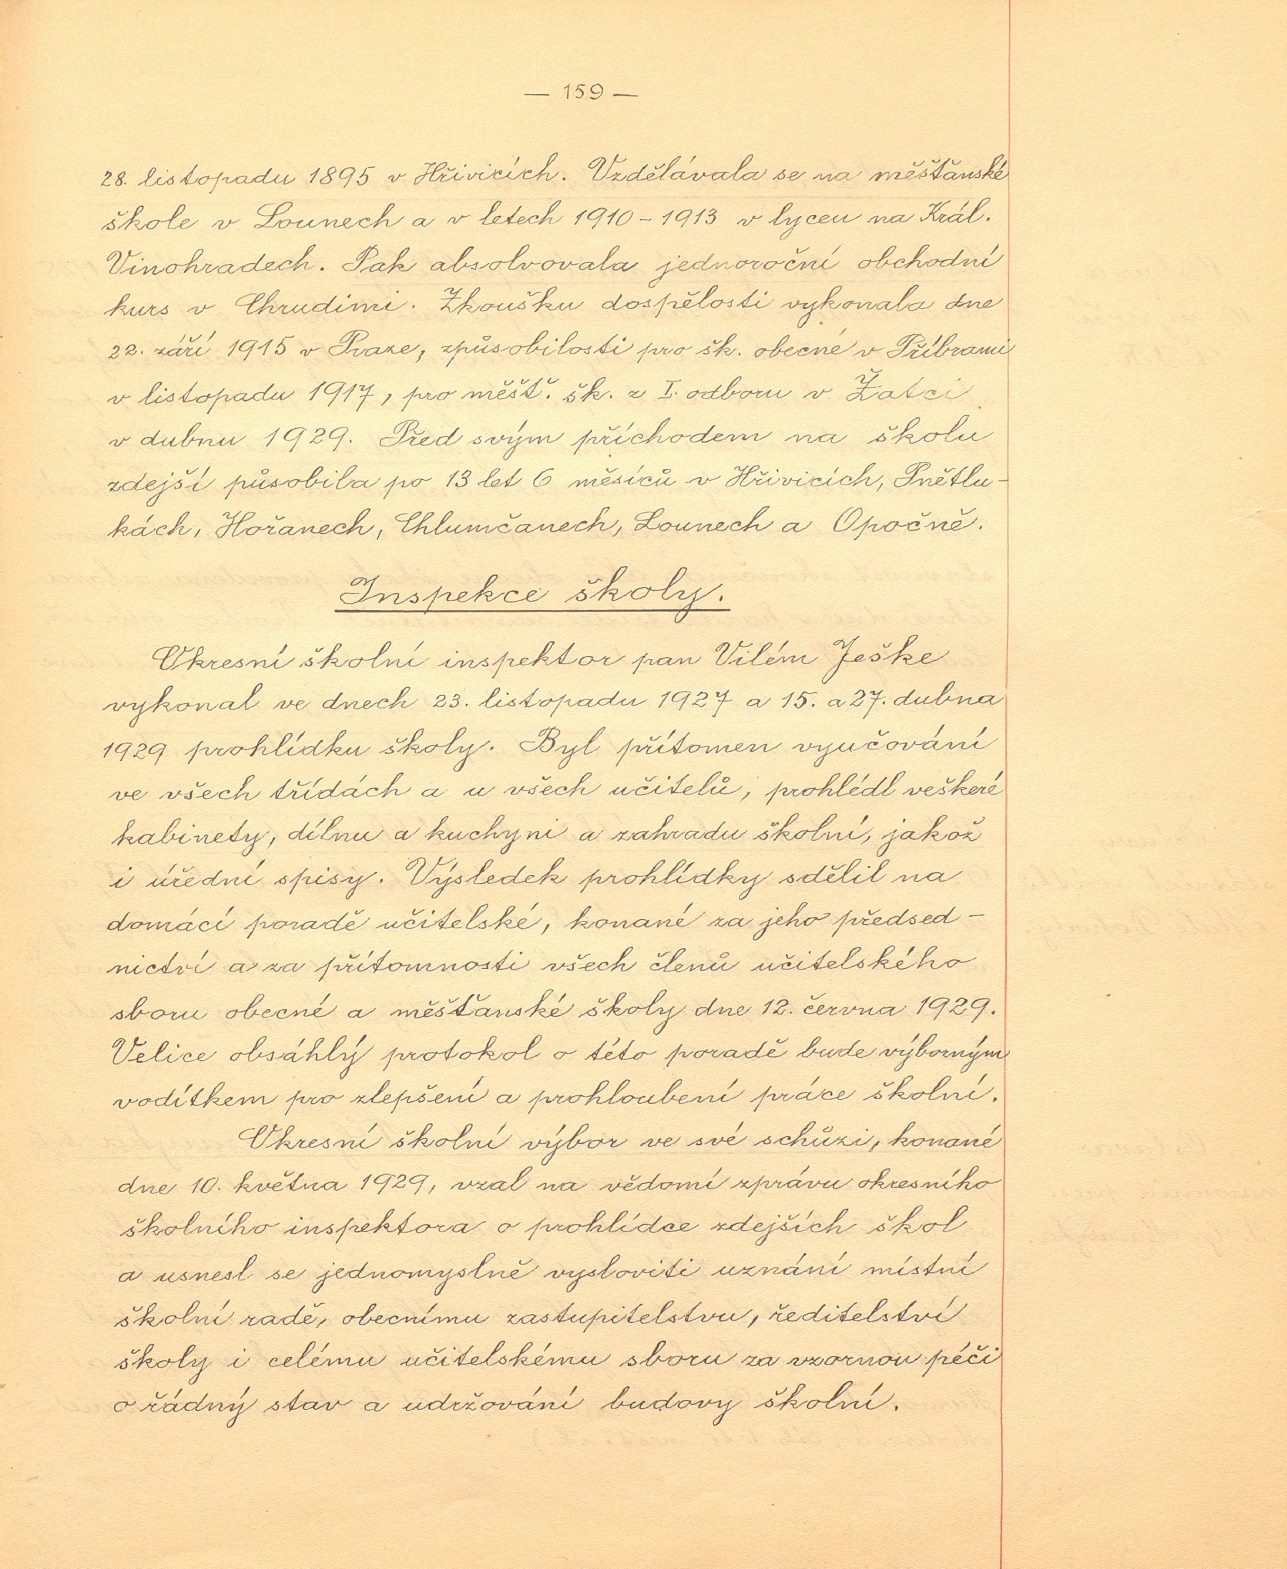 — 159 —
28. listopadu 1895 v Hřivicích. Vzdělávala se na měšťanské
škole v Lounech a v letech 1910 – 1913 v lyceu na Král.
Vinohradech. Pak absolvovala jednoroční obchodní
kurs v Chrudimi. Zkoušku dospělosti vykonala dne
22. září 1915 v Praze, způsobilosti pro šk. obecné v Příbrami
v listopadu 1917, pro měšť. šk. z I. odboru v Žatci
v dubnu 1929. Před svým příchodem na školu
zdejší působila po 13 let 6 měsíců v Hřivicích, Pnětlu-
kách, Hořanech, Chlumčanech, Lounech a Opočně.
Inspekce školy.
Okresní školní inspektor pan Vilém Ješke
vykonal ve dnech 23. listopadu 1927 a 15. a 27. dubna
1929 prohlídku školy. Byl přítomen vyučování
ve všech třídách a u všech učitelů, prohlédl veškeré
kabinety, dílnu a kuchyni a zahradu školní, jakož
i úřední spisy. Výsledek prohlídky sdělil na
domácí poradě učitelské, konané za jeho předsed-
nictví a za přítomnosti všech členů učitelského
sboru obecné a měšťanské školy dne 12. června 1929.
Velice obsáhlý protokol o této poradě bude výborným
vodítkem pro zlepšení a prohloubení práce školní.
Okresní školní výbor ve své schůzi, konané
dne 10. května 1929, vzal na vědomí zprávu okresního
školního inspektora o prohlídce zdejších škol
a usnesl se jednomyslně vysloviti uznání místní
školní radě, obecnímu zastupitelstvu, ředitelství
školy i celému učitelskému sboru za vzornou péči
o řádný stav a udržování budovy školní.